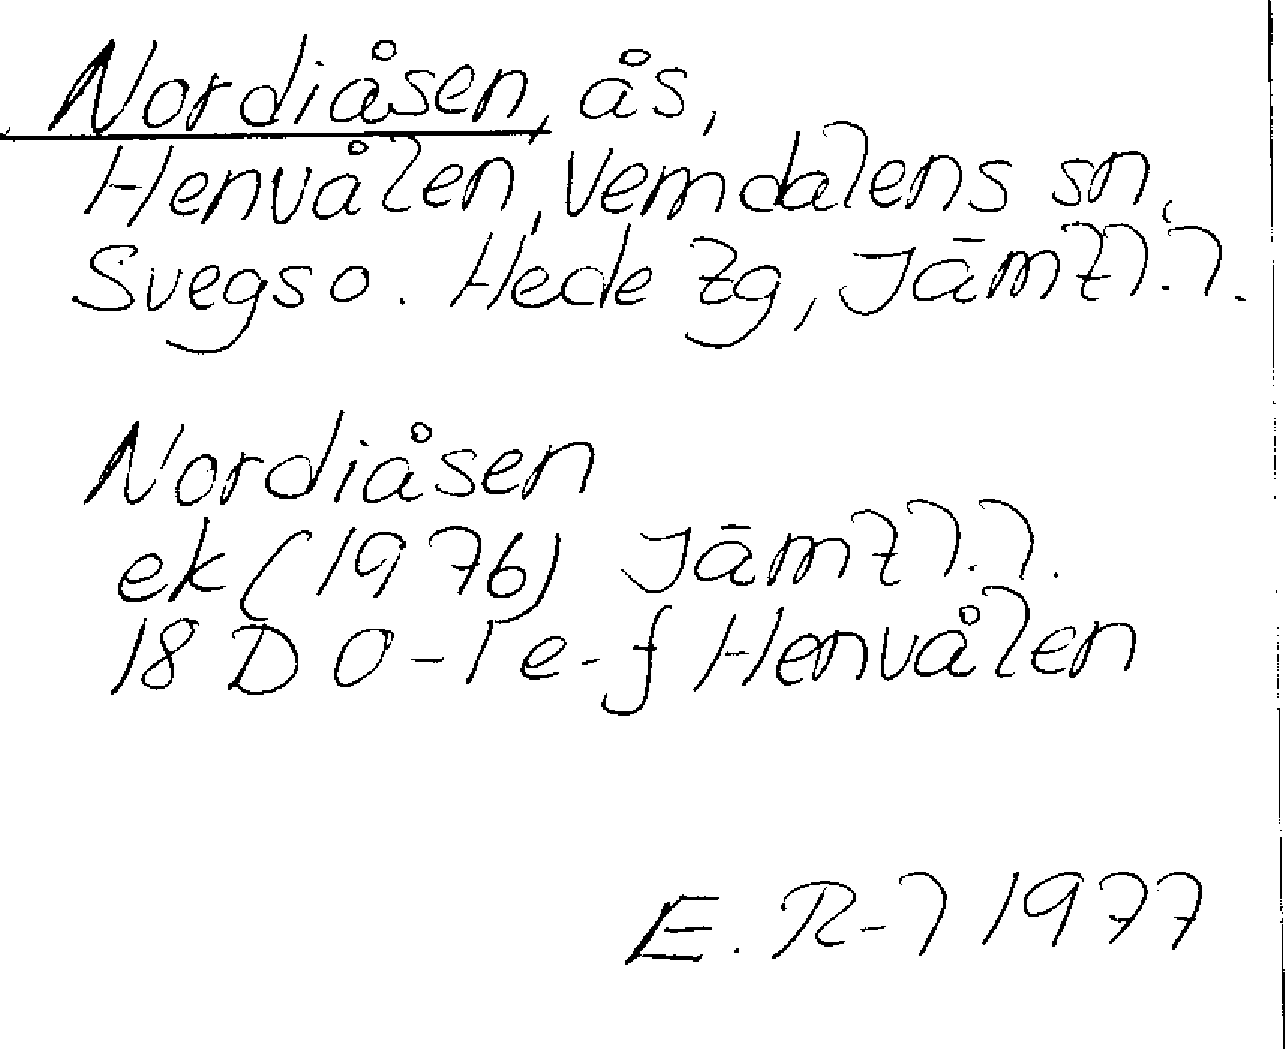 Nordiåsen, ås,
Henvålen, Vemdalens sn,
Svegs o. Hede tg, Jämtl. l.
Nordiåsen
ek (1976) Jämtl. l.
18 D 0-1 e-f Henvålen
E. R-l 1977